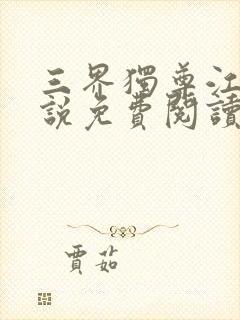 三界獨尊江
說免費閱讀
賈茹